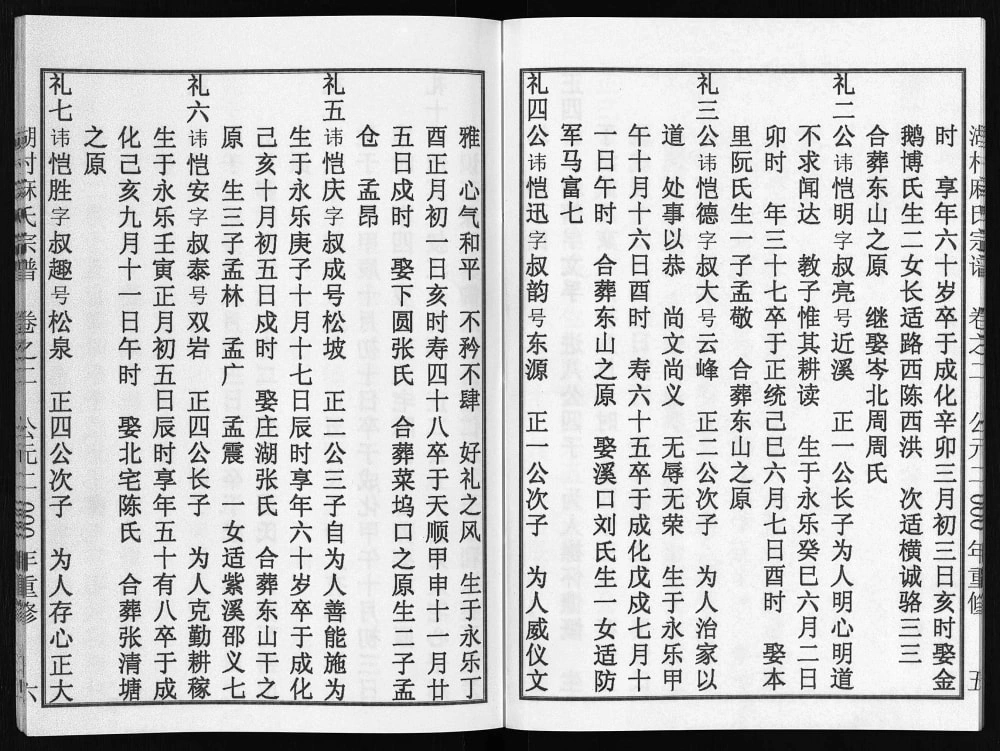 湖村麻氏宗谱 卷之二 公元二〇〇〇年重修 五
时 享年六十岁卒于成化辛卯三月初三日亥时娶金
鹅博氏生二女长适路西陈西洪 次适横诚骆三三
合葬东山之原 继娶岑北周周氏
礼二公讳恺明字叔亮号近溪 正一公长子为人明心明道
不求闻达 教子惟其耕读 生于永乐癸巳六月二日
卯时 年三十七卒于正统己巳六月七日酉时 娶本
里阮氏生一子孟敬 合葬东山之原
礼三公讳恺德字叔大号云峰 正二公次子 为人治家以
道 处事以恭 尚文尚义 无辱无荣 生于永乐甲
午十月十六日酉时 寿六十五卒于成化戊戌七月十
一日午时 合葬东山之原 娶溪口刘氏生一女适防
军马富七
礼四公讳恺迅字叔韵号东源 正一公次子 为人威仪文
雅 心气和平 不矜不肆 好礼之风 生于永乐丁
酉正月初一日亥时寿四十八卒于天顺甲申十一月廿
五日戍时 娶下圆张氏 合葬菜坞口之原生二子孟
仓 孟昂
礼五讳恺庆字叔成号松坡 正一公三子自为人善能施为
生于永乐庚子十月十七日辰时享年六十岁卒于成化
己亥十一月初五日戍时 娶庄湖张氏 合葬东山干之
原 生三子孟林 孟广 孟震 女适紫溪邵义七
礼六讳恺安字叔泰号双岩 正四公长子 为人克勤耕稼
生于永乐壬寅正月初五日辰时享年五十有八卒于成
化己亥九月十一日午时 娶北宅陈氏 合葬张清塘
之原
礼七讳恺胜字叔趣号松泉 正四公次子 为人存心正大
湖村麻氏宗谱 卷之二 公元二〇〇〇年重修 六